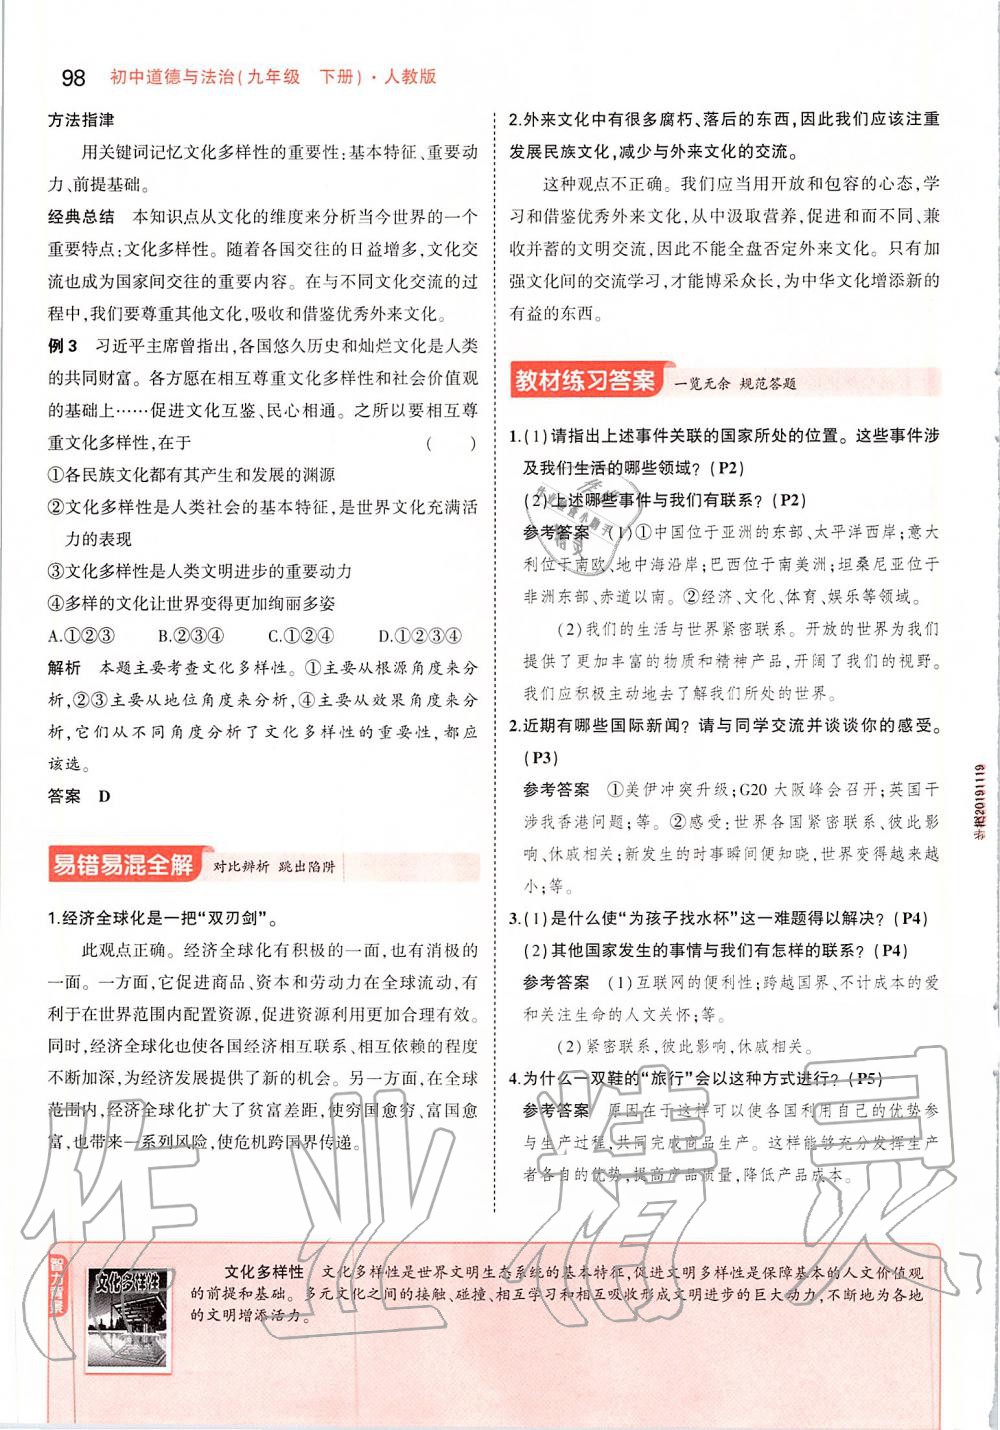 98 初中道德与法治(九年级 下册)·人教版
方法指津
用关键词记忆文化多样性的重要性:基本特征、重要动
力、前提基础。
经典总结 本知识点从文化的维度来分析当今世界的一个
重要特点:文化多样性。随着各国交往的日益增多,文化交
流也成为国家间交往的重要内容。在与不同文化交流的过
程中,我们要尊重其他文化,吸收和借鉴优秀外来文化。
例3 习近平主席曾指出,各国悠久历史和灿烂文化是人类
的共同财富。各方愿在相互尊重文化多样性和社会价值观
的基础上……促进文化互鉴、民心相通。之所以要相互尊
重文化多样性,在于 ( )
①各民族文化都有其产生和发展的渊源
②文化多样性是人类社会的基本特征,是世界文化充满活
力的表现
③文化多样性是人类文明进步的重要动力
④多样的文化让世界变得更加绚丽多姿
A.①②③ B.②③④ C.①②④ D.①②③④
解析 本题主要考查文化多样性。①主要从根源角度来分
析,②③主要从地位角度来分析,④主要从效果角度来分
析,它们从不同角度分析了文化多样性的重要性,都应
该选。
答案 D
易错易混全解 对比辨析 跳出陷阱
1.经济全球化是一把“双刃剑”。
此观点正确。经济全球化有积极的一面,也有消极的
一面。一方面,它促进商品、资本和劳动力在全球流动,有
利于在世界范围内配置资源,促进资源利用更加合理有效。
同时,经济全球化也使各国经济相互联系、相互依赖的程度
不断加深,为经济发展提供了新的机会。另一方面,在全球
范围内,经济全球化扩大了贫富差距,使穷国愈穷,富国愈
富,也带来一系列风险,使危机跨国界传递。
2.外来文化中有很多腐朽、落后的东西,因此我们应该注重
发展民族文化,减少与外来文化的交流。
这种观点不正确。我们应当用开放和包容的心态,学
习和借鉴优秀外来文化,从中汲取营养,促进和而不同、兼
收并蓄的文明交流,因此不能全盘否定外来文化。只有加
强文化间的交流学习,才能博采众长,为中华文化增添新的
有益的东西。
教材练习答案 一览无余 规范答题
1.(1)请指出上述事件关联的国家所处的位置。这些事件涉
及我们生活的哪些领域?(P2)
(2)上述哪些事件与我们有联系?(P2)
参考答案 (1)①中国位于亚洲的东部、太平洋西岸;意大
利位于南欧、地中海沿岸;巴西位于南美洲;坦桑尼亚位于
非洲东部、赤道以南。②经济、文化、体育、娱乐等领域。
(2)我们的生活与世界紧密联系。开放的世界为我们
提供了更加丰富的物质和精神产品,开阔了我们的视野。
我们应积极主动地去了解我们所处的世界。
2.近期有哪些国际新闻?请与同学交流并谈谈你的感受。
(P3)
参考答案 ①美伊冲突升级;G20大阪峰会召开;英国干
涉我香港问题;等。②感受:世界各国紧密联系,彼此影
响、休戚相关;新发生的时事瞬间便知晓,世界变得越来越
小;等。
3.(1)是什么使“为孩子找水杯”这一难题得以解决?(P4)
(2)其他国家发生的事情与我们有怎样的联系?(P4)
参考答案 (1)互联网的便利性;跨越国界、不计成本的爱
和关注生命的人文关怀;等。
(2)紧密联系,彼此影响,休戚相关。
4.为什么一双鞋的“旅行”会以这种方式进行?(P5)
参考答案 原因在于这样可以使各国利用自己的优势参
与生产过程,共同完成商品生产。这样能够充分发挥生产
者各自的优势,提高产品质量,降低产品成本。
智力背景
文化多样性
文化多样性 文化多样性是世界文明生态系统的基本特征,促进文明多样性是保障基本的人文价值观
的前提和基础。多元文化之间的接触、碰撞、相互学习和相互吸收形成文明进步的巨大动力,不断地为各地
的文明增添活力。
作业精灵